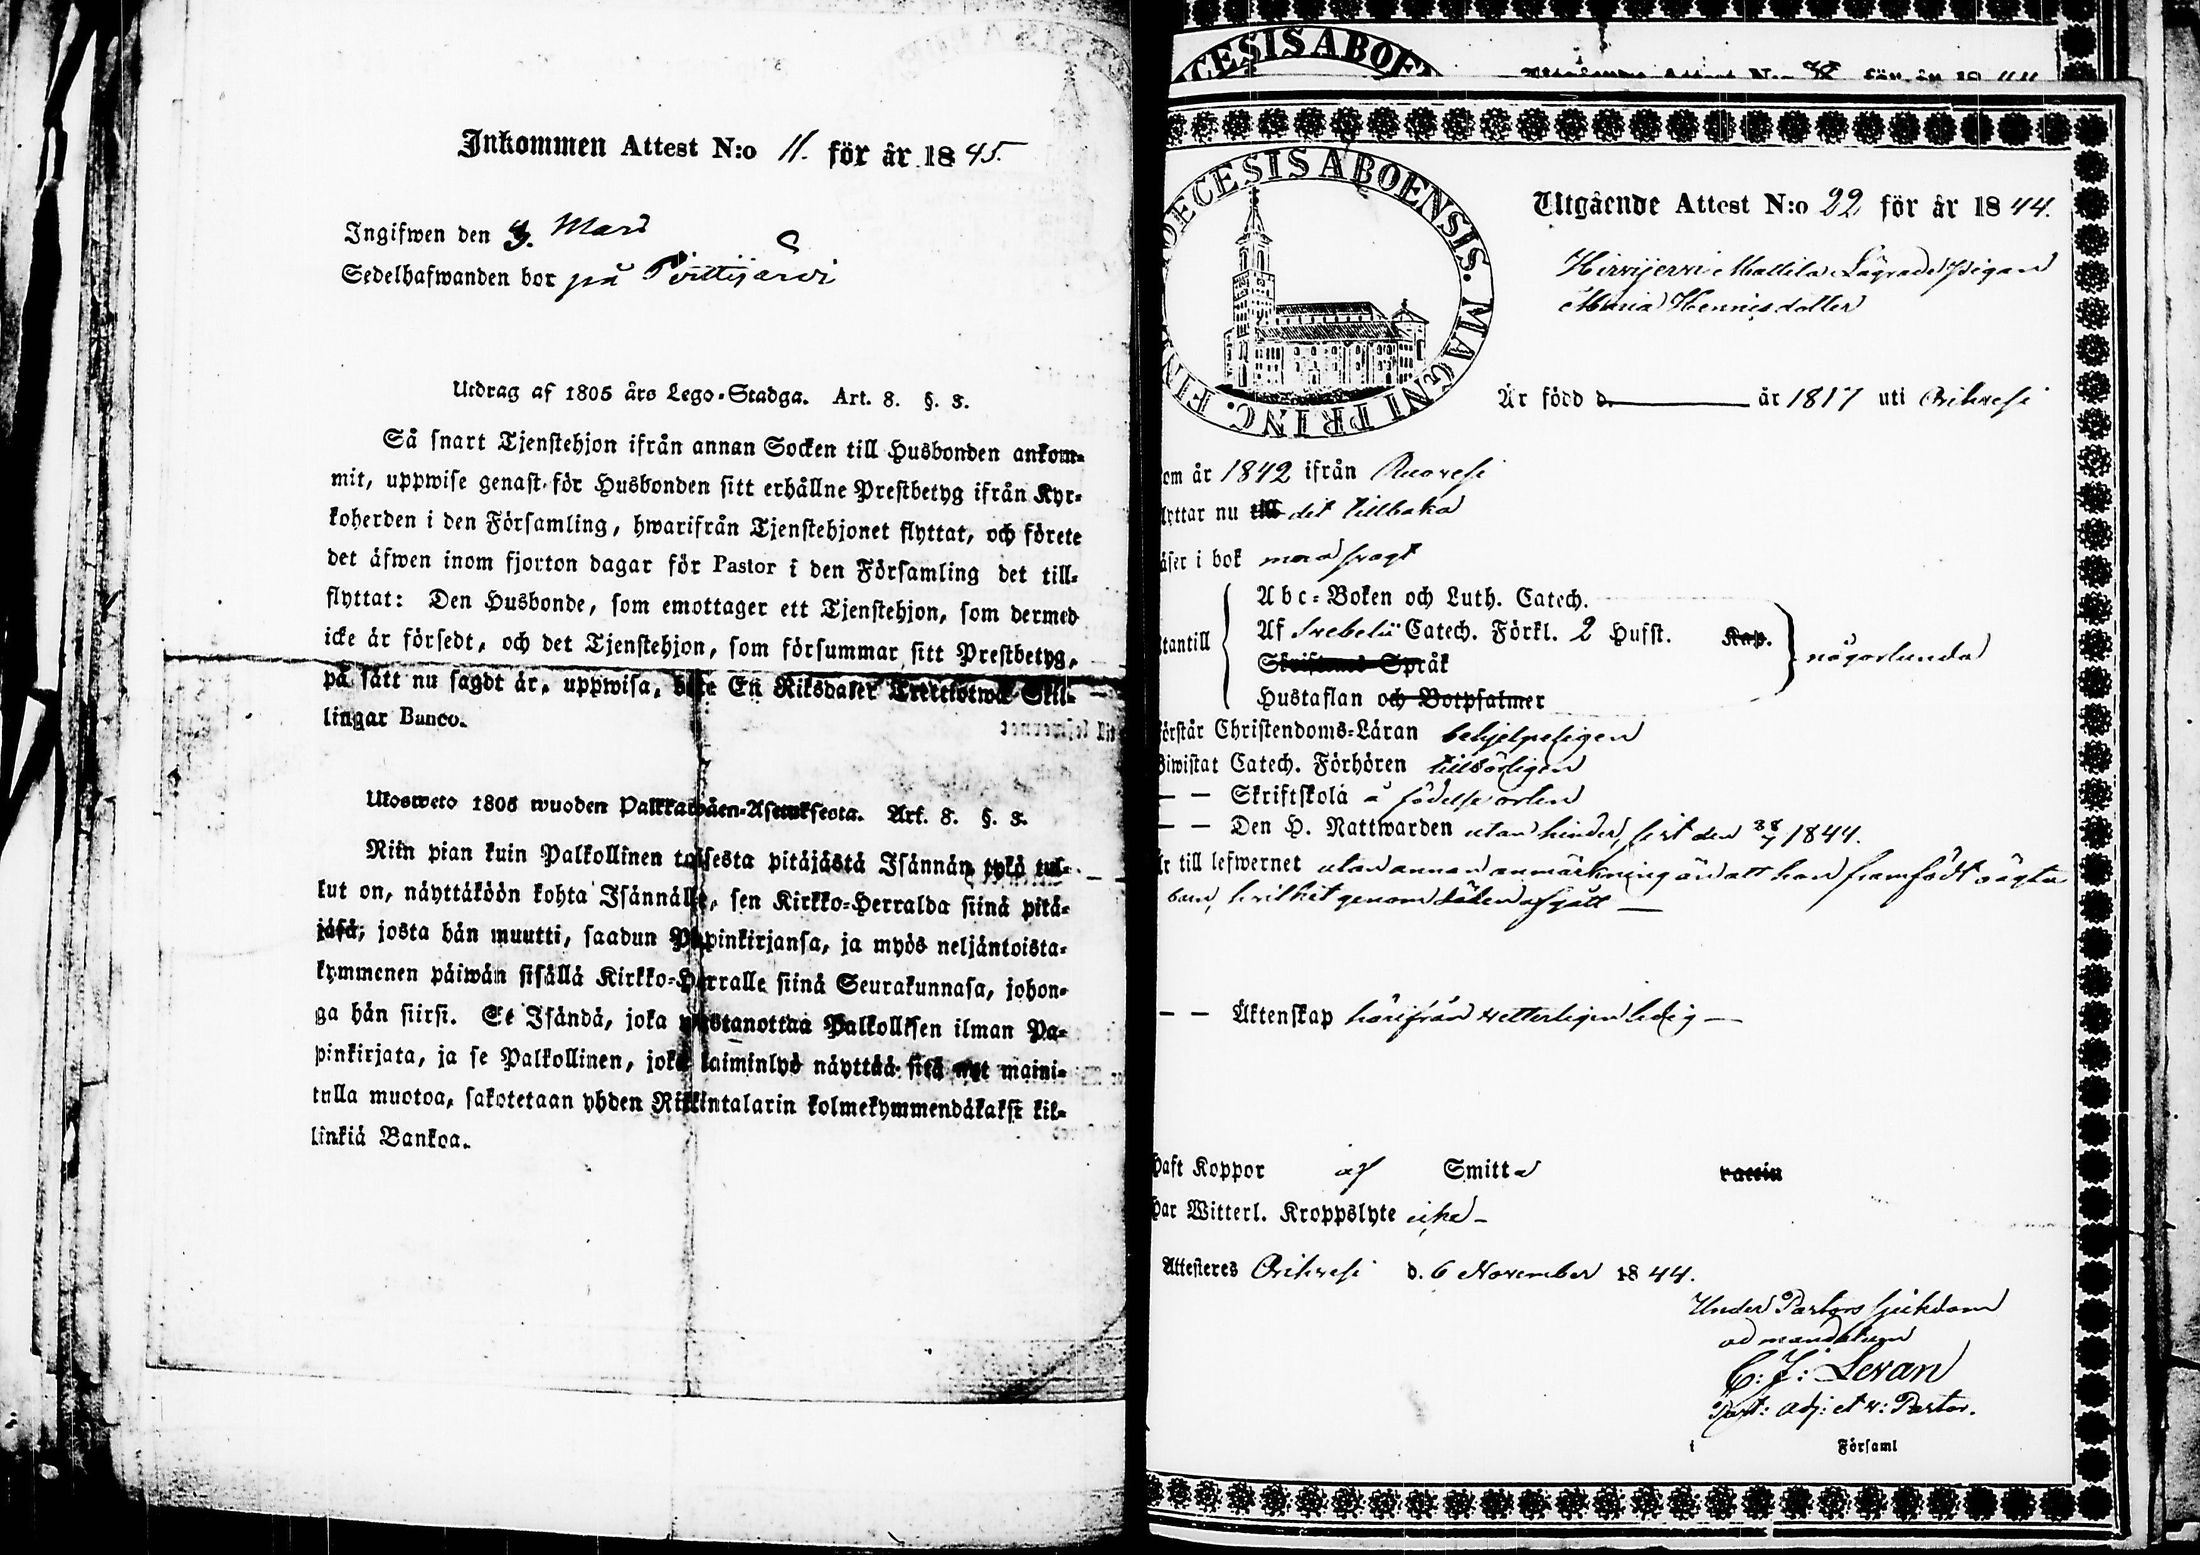 Inkommen Attest N:o 11. för år 1845.
Ingifwen den 3. Mars
Sedelhafwanden bor på
Utdrag af 1805 års Lego-Stadga. Art. 8. §. 3.
Så snart Tjenstehjon ifrån annan Socken till Husbonden ankom-
mit, uppwise genast för Husbonden sitt erhållne Prestbetyg ifrån Kyr-
koherden i den Församling, hwarifrån Tjenstehjonet flyttat, och förete
det äfwen inom fjorton dagar för Pastor i den Församling det till-
flyttat: Den Husbonde, som emottager ett Tjenstehjon, som dermed
icke är försedt, och det Tjenstehjon, som försummar sitt Prestbetyg,
på sätt nu sagdt är, uppwisa, böte En Riksdaler Trettiotwå Skil-
lingar Banco.
Ulosweto 1805 wuoden Palkkawäen-Asetuksesta. Art. 8. §. 3.
Niin pian kuin Palkollinen toisesta pitäjästä Isännän tykö tul-
lut on, näyttäköön kohta Isännälle, sen Kirkko-Herralda siinä pitä-
jäsä, josta hän muutti, saadun Papinkirjansa, ja myös neljäntoista-
kymmenen päiwän sisällä Kirkko-Herralle siinä Seurakunnasa, johon-
ga hän siirsi. Se Isändä, joka wastanottaa Palkollisen ilman Pa-
pinkirjata, ja se Palkollinen, joka laiminlyö näyttää sitä nyt maini-
tulla muotoa, sakotetaan yhden Riikintalarin kolmekymmendäkaksi kil-
linkiä Bankoa.
CESIS ABOE
DIOECESIS ABOENSIS. MAGNI PRINC. FIN
Utgående Attest N:o 22 för år 1844.
Hirvijervi Mattila Lägrade Pigan
Maria Hennisdotter
Är född d. år 1817 uti Orihvesi
om år 1842 ifrån Ruovesi
lyttar nu till dit tillbaka
äser i bok med svagt
Abc-Boken och Luth. Catech.
tantill Af Svebelii Catech. Förkl. 2 Hufst. Kap. någorlunda
Skriftenes Språk
Hustaflan och Botpsalmer
örstår Christendoms-Läran behjelpeligen
Biwistat Catech. Förhören tillbörligen
— — Skriftskola å födelseorten
— — Den H. Nattwarden utan hinder, sist den 28/7 1844.
Är till lefwernet utan annan anmärkning än att hon framfödt oägta
barn, hvilket genom döden afgått —
— — Äktenskap härifrån vetterligen ledig —
Haft Koppor af Smitta vaccin
Har Witterl. Kroppslyte icke —
Attesteres Orihvesi d. 6 November 1844.
Under Pastors sjukdom
ad mandatum
C: J: Levan
Past: adj: et v: Pastor.
i Församl